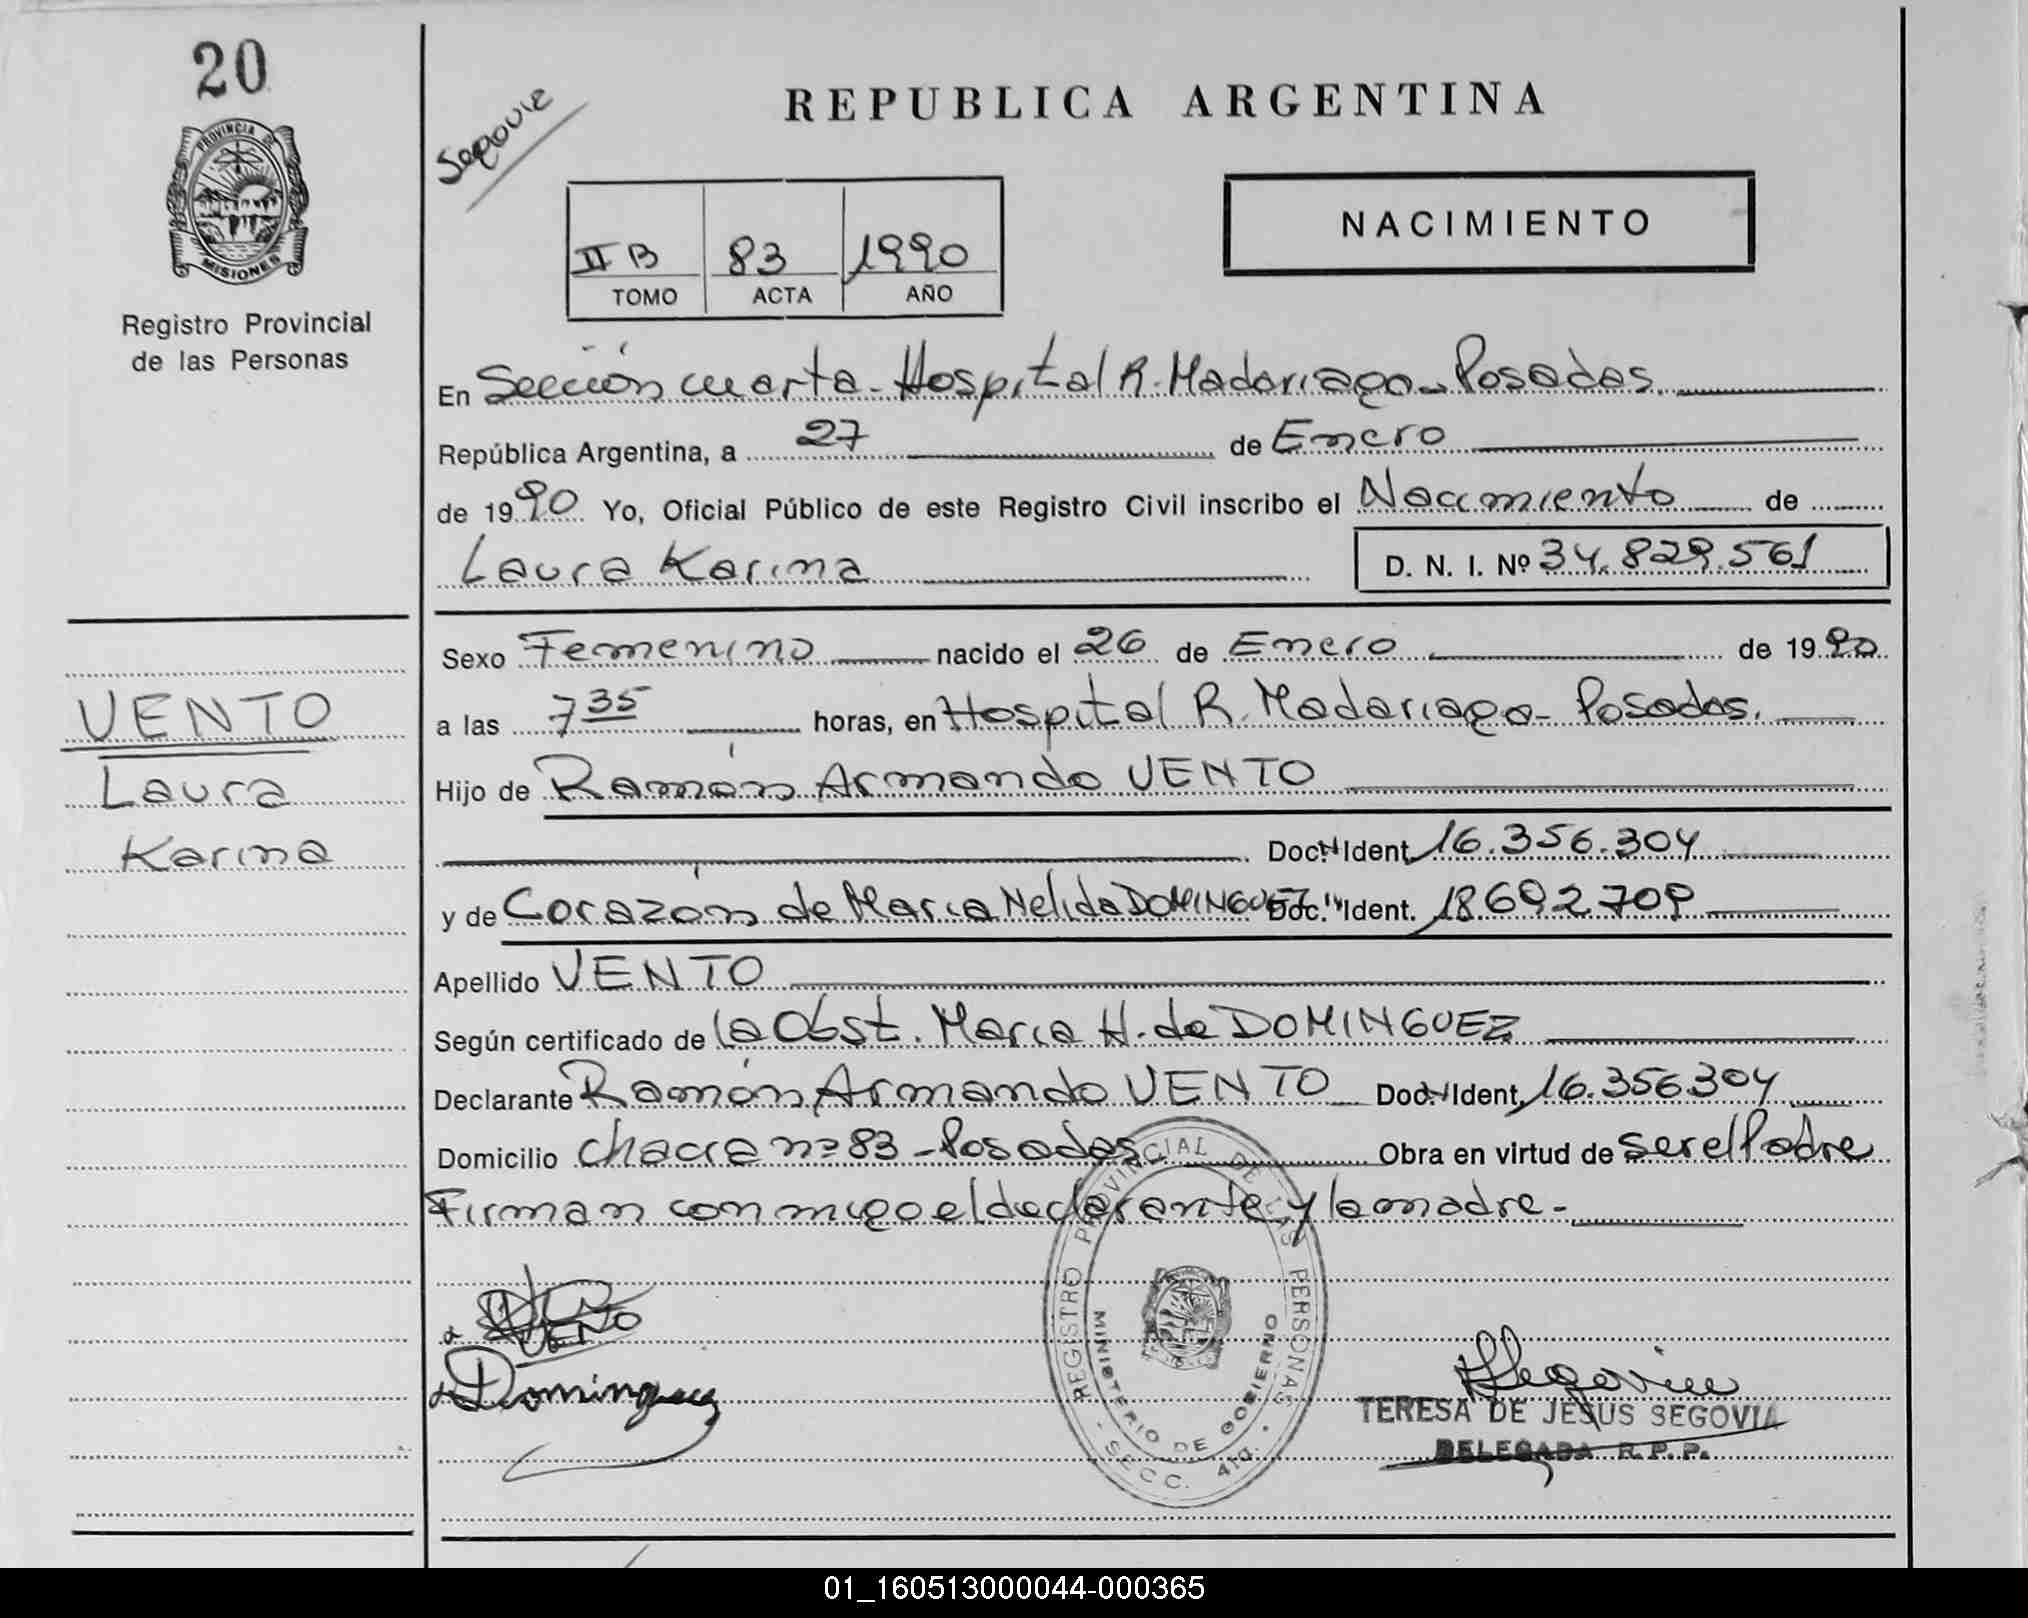 20
PROVINCIA DE
MISIONES
Registro Provincial
de las Personas
VENTO
Laura
Karina
Segovia
REPUBLICA ARGENTINA
II B 83 1990
TOMO ACTA AÑO
NACIMIENTO
En Sección cuarta - Hospital R. Madariaga - Posadas.
República Argentina, a 27 de Enero
de 1990 Yo, Oficial Público de este Registro Civil inscribo el Nacimiento de
Laura Karina D. N. I. Nº 34.829.561
Sexo Femenino nacido el 26 de Enero de 1990
a las 7 35 horas, en Hospital R. Madariaga - Posadas.
Hijo de Ramón Armando VENTO
Doc. Ident. 16.356.304
y de Corazón de María Nelida DOMINGUEZ Doc. Ident. 18692709
Apellido VENTO
Según certificado de la Obst. María H. de DOMINGUEZ
Declarante Ramón Armando VENTO Doc. Ident. 16.356304
Domicilio Chacra nº 83 - Posadas Obra en virtud de ser el Padre
Firman conmigo el declarante y la madre -
VENTO
Dominguez
REGISTRO PROVINCIAL DE LAS PERSONAS
MINISTERIO DE GOBIERNO
- SECC. 4ta. -
Segovia
TERESA DE JESUS SEGOVIA
DELEGADA R. P. P.
01_160513000044-000365